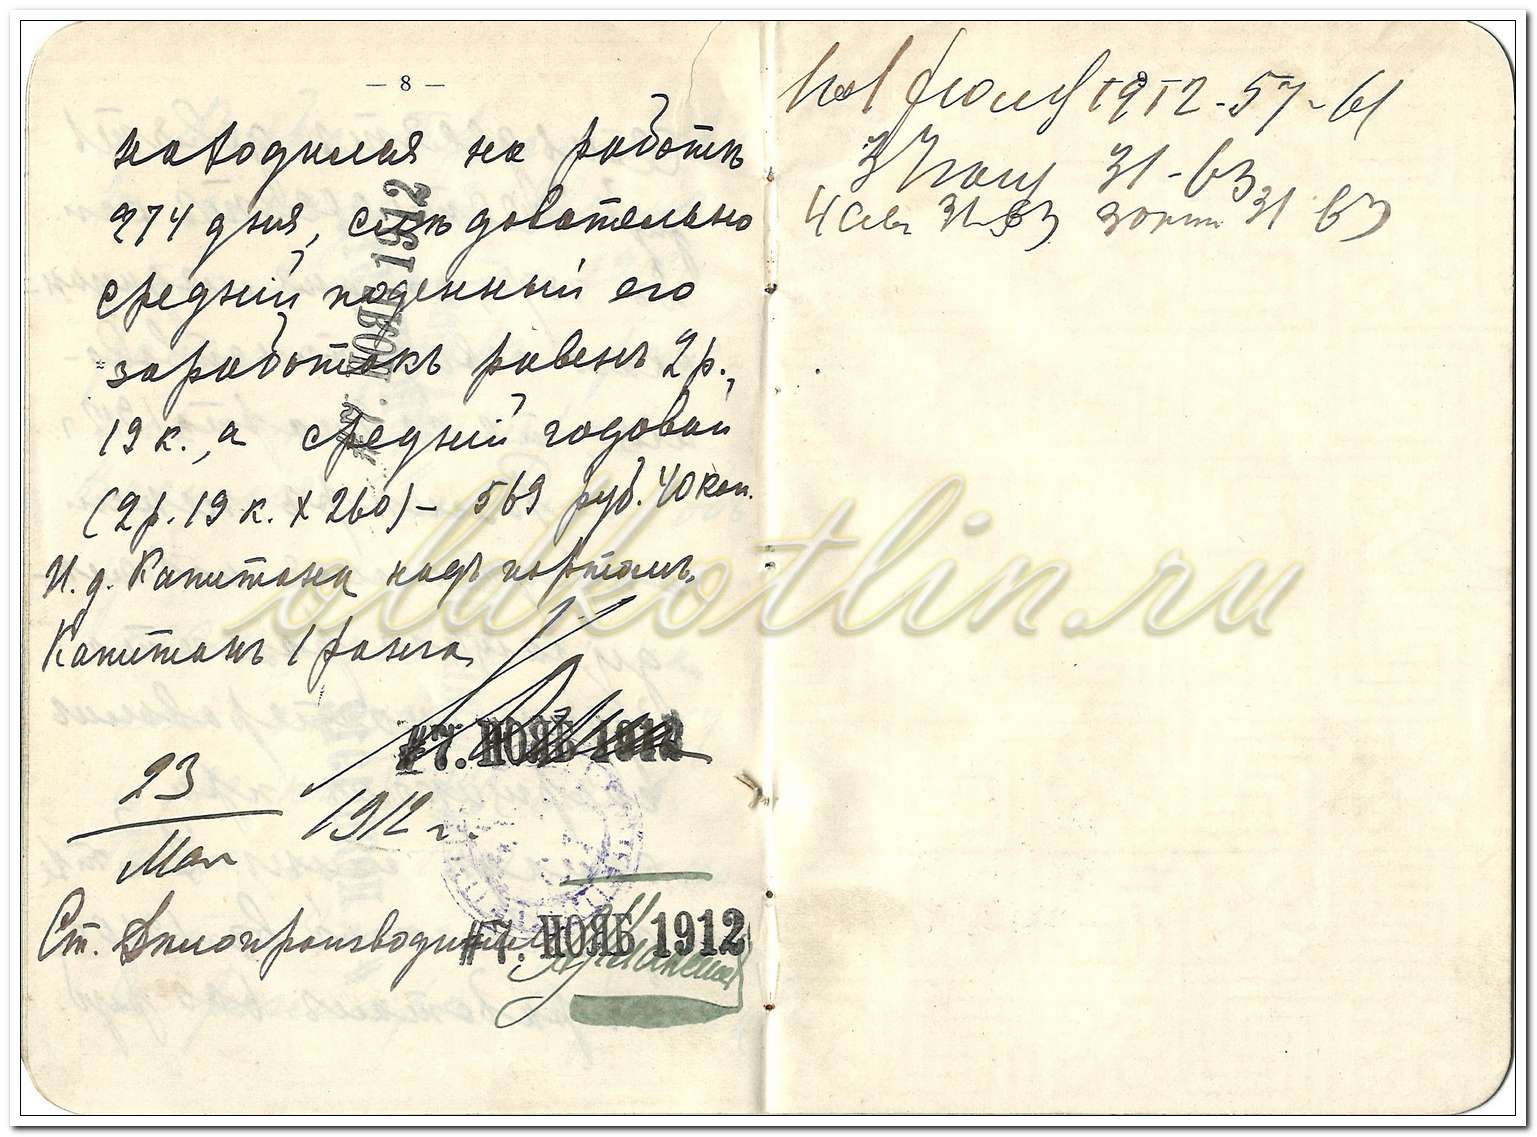 — 8 —
находился на работѣ
274 дня, слѣдовательно
средній поденный его
заработокъ равенъ 2 р.,
19 к., а средній годовой
(2 р. 19 к. х 260) — 569 руб. 40 коп.
И. д. Капитана надъ портомъ,
Капитанъ 1 ранга
#7. НОЯБ 1912
23
Мая
1912 г.
Ст. Дѣлопроизводитель
#7. НОЯБ 1912
#7. НОЯБ 1912
1912 - 57 - 61
3 31 - 63
4 31 63 31 63
oldkotlin.ru